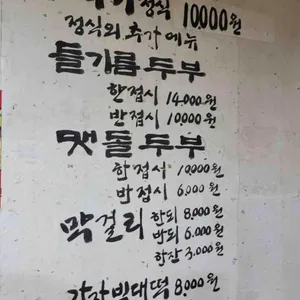 정식 10000원
정식외 추가메뉴
들기름두부
한접시 14,000원
반접시 10,000원
맷돌두부
한접시 10,000원
반접시 6,000원
막걸리 한되 8,000원
반되 6,000원
한잔 3,000원
감자빈대떡 8,000원